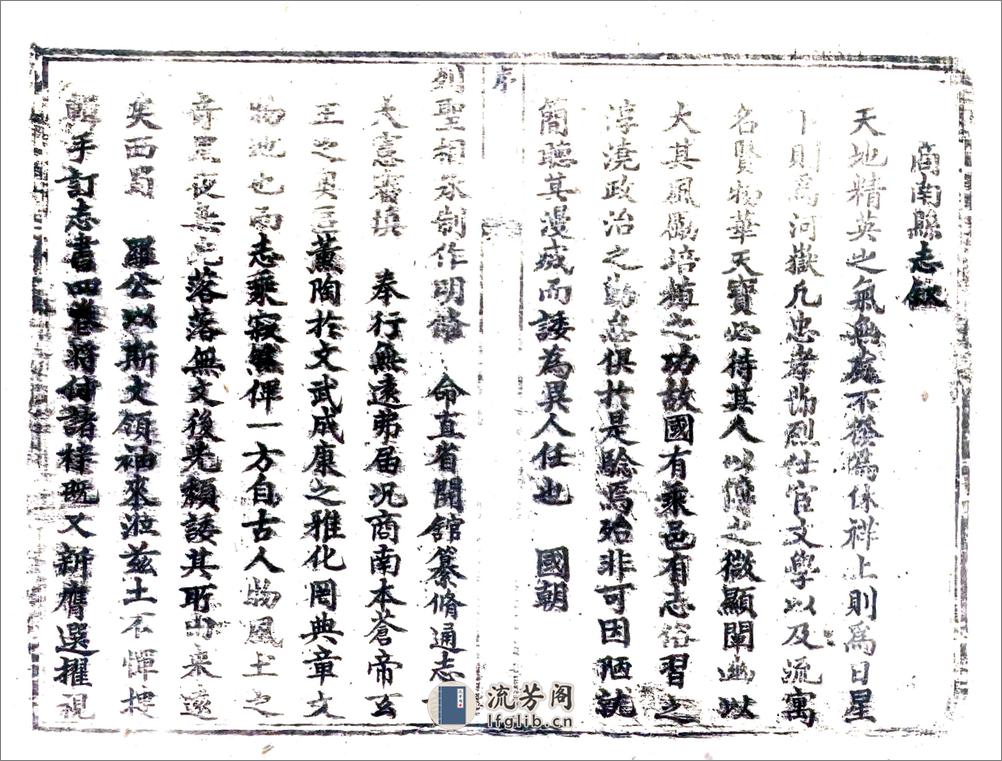 商南縣志敘
天地精英之氣無處不發為休祥上則為日星
下則為河嶽凡忠孝節烈仕宦文學以及流寓
名賢物華天寶必待其人以傳之微顯闡幽以
大其風勵培植之功故國有乘邑有志俗習之
淳澆政治之勤怠俱於是驗焉殆非可因陋就
簡聽其漫滅而諉為異人任也 國朝
序
列聖相承制作明備 命直省開館纂脩通志
大憲審填 奉行無遠弗屆况商南本蒼帝玄
王之奧區薰陶於文武成康之雅化罔典章文
物地也而志乘寂然俾一方自古人物風土之
奇置夜無光落落無文後先頹諉其所由來遠
矣西蜀 羅公以斯文領袖來涖茲土不憚提
手訂志書四卷將付諸梓既又新膺選擢視
流芳阁
lfglib.cn